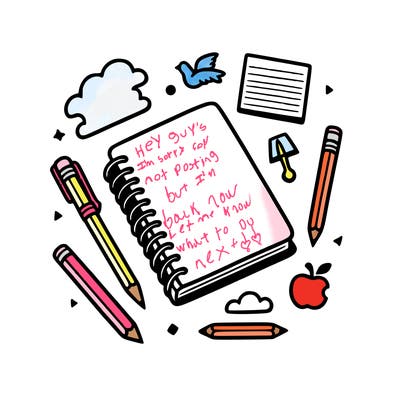 HEY guy's
I'm sorry cof
not posting
but I'm
back now
Let me know
what to Dy
next